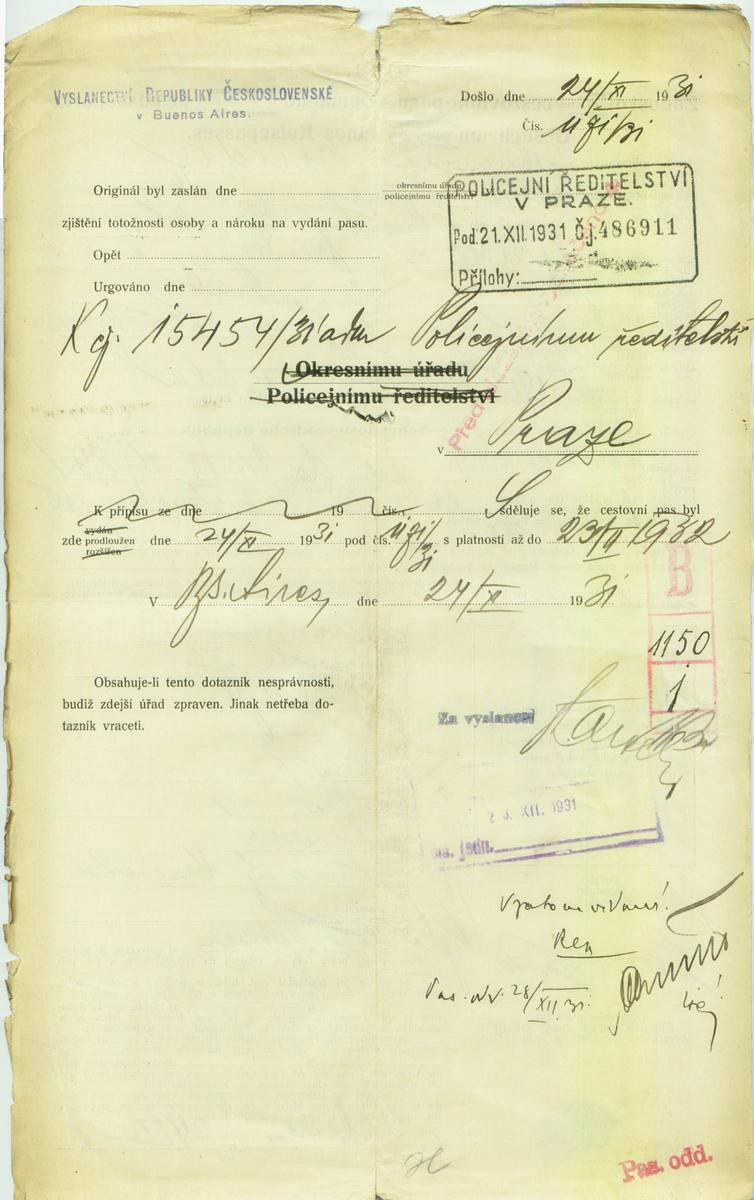 VYSLANECTVÍ REPUBLIKY ČESKOSLOVENSKÉ
v Buenos Aires.
Došlo dne 24/XI 1931
Čís.
Originál byl zaslán dne okresnímu úřadu
policejnímu ředitelství
zjištění totožnosti osoby a nároku na vydání pasu.
Opět
Urgováno dne
POLICEJNÍ ŘEDITELSTVÍ
V PRAZE.
Pod: 21. XII. 1931 Č.j. 486911
Přílohy:
K čj. 15454/31 adm Policejnímu ředitelství
Okresnímu úřadu
Policejnímu ředitelství
v Praze
K přípisu ze dne 19 čís. Sděluje se, že cestovní pas byl
vydán
zde prodloužen dne 24/XI 1931 pod čís. s platností až do 23/II 1932
rozšířen
V Bs. Aires, dne 24/XI 1931
B
1150
1
Obsahuje-li tento dotazník nesprávnosti,
budiž zdejší úřad zpraven. Jinak netřeba do-
tazník vraceti.
Za vyslance:
23. XII. 1931
Pas. odd.